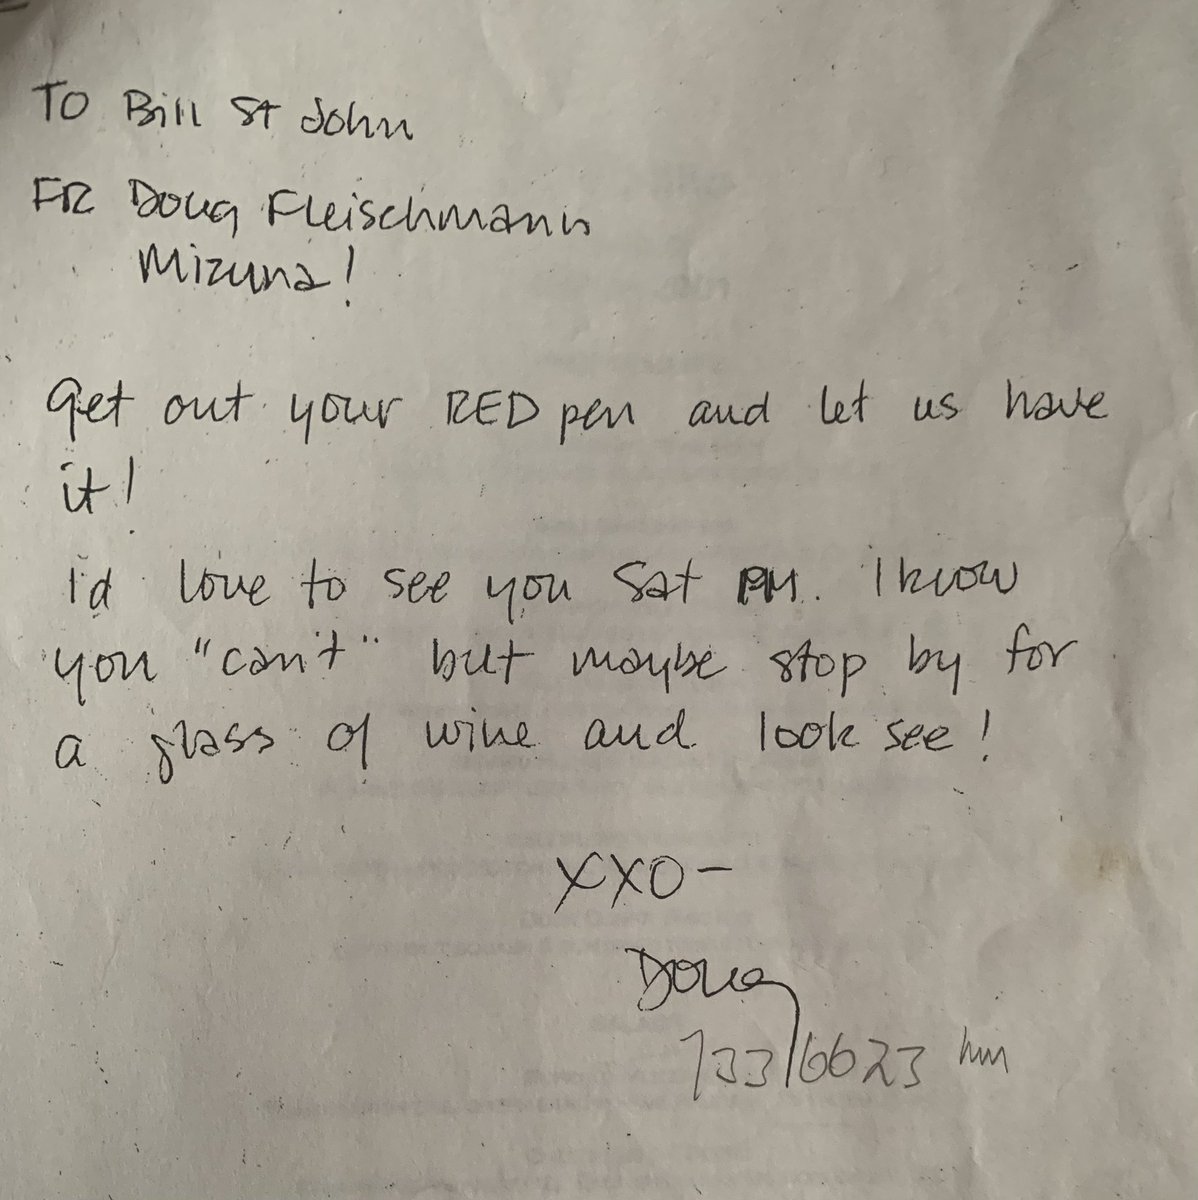 TO Bill St John
FR Doug Fleischmann
Mizuna!
Get out your RED pen and let us have
it!
I'd love to see you Sat PM. I know
you "can't" but maybe stop by for
a glass of wine and look see!
XXO-
Doug
733/6623 hm